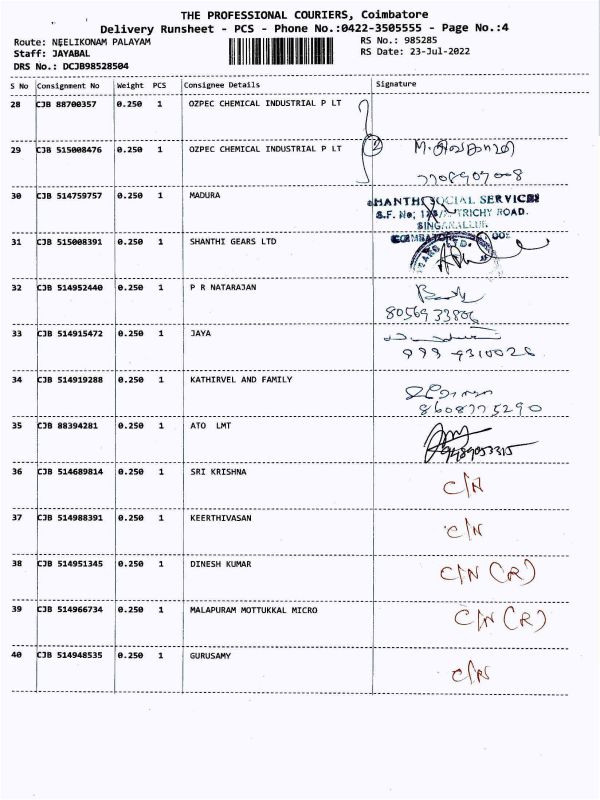 THE PROFESSIONAL COURIERS, Coimbatore
Delivery Runsheet - PCS - Phone No.:0422-3505555 - Page No.:4
Route: NEELIKONAM PALAYAM RS No.: 985285
Staff: JAYABAL RS Date: 23-Jul-2022
DRS No.: DCJB98528504
S No Consignment No Weight PCS Consignee Details Signature
28 CJB 88700357 0.250 1 OZPEC CHEMICAL INDUSTRIAL P LT
29 CJB 515008476 0.250 1 OZPEC CHEMICAL INDUSTRIAL P LT 2
7708907008
30 CJB 514759757 0.250 1 MADURA SHANTHI SOCIAL SERVICES
S.F. No; TRICHY ROAD.
SINGANALLUR
31 CJB 515008391 0.250 1 SHANTHI GEARS LTD COIMBATORE
32 CJB 514952440 0.250 1 P R NATARAJAN
8056933806
33 CJB 514915472 0.250 1 JAYA
34 CJB 514919288 0.250 1 KATHIRVEL AND FAMILY
8608775290
35 CJB 88394281 0.250 1 ATO LMT
9489053315
36 CJB 514689814 0.250 1 SRI KRISHNA C/N
37 CJB 514988391 0.250 1 KEERTHIVASAN C/N
38 CJB 514951345 0.250 1 DINESH KUMAR C/N (R)
39 CJB 514966734 0.250 1 MALAPURAM MOTTUKKAL MICRO C/N (R)
40 CJB 514948535 0.250 1 GURUSAMY C/N